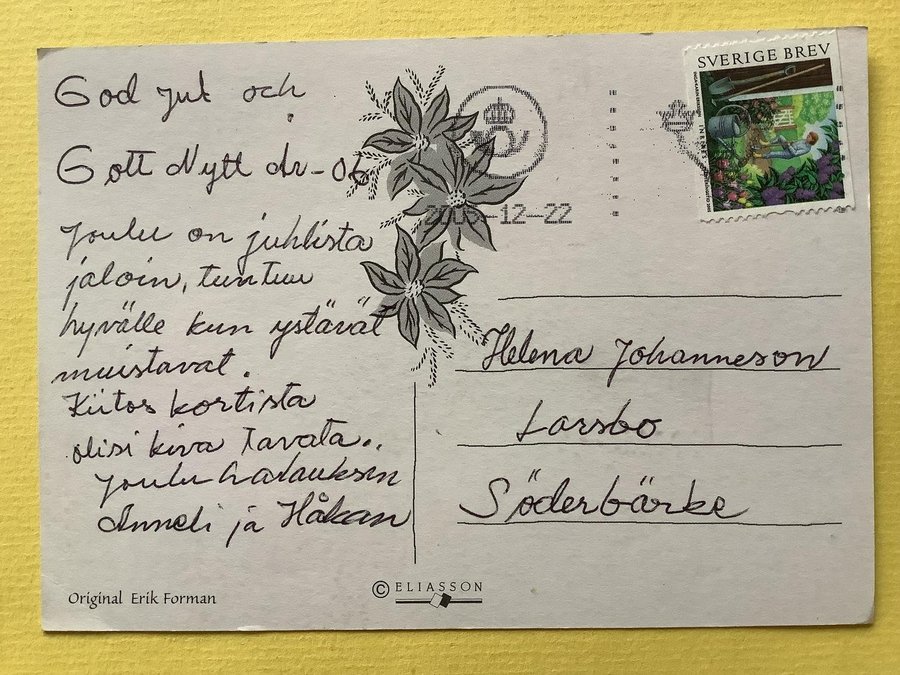 God Jul och
Gott Nytt År-06
Joulu on juhlista
jaloin, tuntuu
hyvälle kun ystävät
muistavat.
Kiitos kortista
olisi kiva tavata..
Jouluhalauksin
Anneli ja Håkan
Original Erik Forman
© ELIASSON
SVERIGE BREV
2005-12-22
Helena Johanneson
Larsbo
Söderbärke